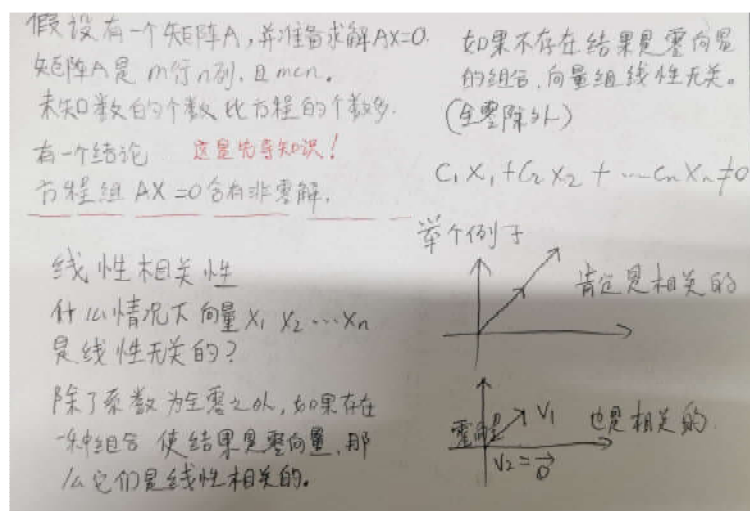 假设有一个矩阵A,并准备求解AX=0.
矩阵A是 m行n列,且m<n.
未知数的个数比方程的个数多.
有一个结论 这是先导知识!
方程组 AX=0含有非零解.
线性相关性
什么情况下向量 X1 X2 ... Xn
是线性无关的?
除了系数为全零之外,如果存在
一种组合 使结果是零向量,那
么它们是线性相关的。
如果不存在结果是零向量
的组合,向量组线性无关。
(全零除外)
C1X1+C2X2+...CnXn≠0
举个例子
肯定是相关的
零向量
V1
V2=0⃗
也是相关的.